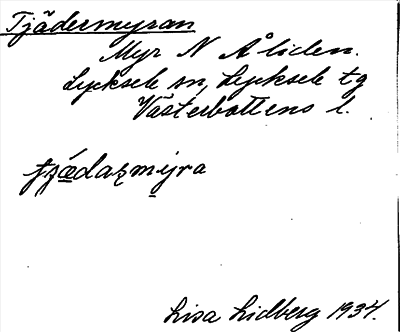 Tjädermyran
Myr N Åliden.
Lycksele sn, Lycksele tg
Västerbottens l.
Lisa Lidberg 1934.